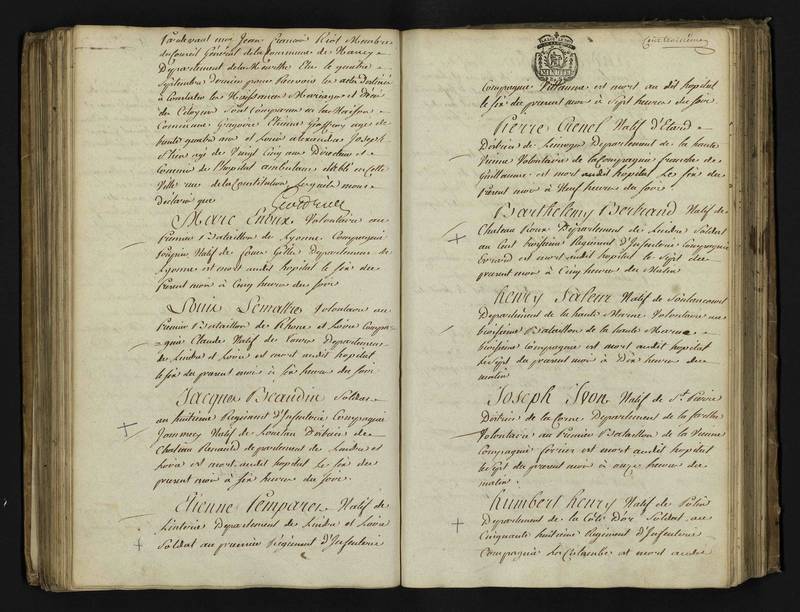 Par devant moi Jean François Riot Membre
du Conseil Général de la Commune de Nancy
Département de la Meurthe Elu le quatre
Septembre dernier pour Recevoir les actes Destinés
à Constater les Naissances Mariages et Décès
des Citoyens Sont Comparus en la Maison
Commune Grégoire Etienne Geoffroy agé de
trente quatre ans et Louis alexandre Joseph
agé de Vingt Cinq ans Directeur et
Commis de l'hopital ambulant établi en Cette
Ville rue de la Constitution Lesquels m'ont
Déclaré que
Marc Volontaire au
Premier Bataillon de Lyonne Compagnie
Natif de Département de
Lyonne est mort audit hopital le Six du
Present mois à Cinq heures du Soir
Louis Lemaitre Volontaire au
Premier Bataillon de Rhone et Loire Compa-
gnie Claude Natif de Tours Département
de Lindre et Loire est mort audit hopital
le Six du present mois à Six heures du Soir
Jacques Beaudin Soldat
au huitieme Regiment d'Infanterie Compagnie
Natif de District de
Chateau Renaud departement de Lindre et
Loire est mort audit hopital le Six du
present mois à Six heures du Soir.
Etienne Natif de
Département de Lindre et Loire
Soldat au premier Régiment d'Infanterie
MINUTE
Cent troisieme
Compagnie est mort au dit hopital
le Six du present mois à Sept heures du Soir
Pierre Natif d'
District de Limoges Département de la haute
Vienne Volontaire de la Compagnie franche de
Guillaume est mort audit hopital Le Six du
Present mois à Neuf heures du Soir
Barthelemy Bertrand Natif de
Chateau Roux Département de Lindre Soldat
au Cent troisieme Regiment d'Infanterie Compagnie
est mort audit hopital le Sept du
present mois à Cinq heures du Matin
henry Natif de
Département de la haute Marne Volontaire au
troisieme Bataillon de la haute Marne
troisieme Compagnie est mort audit hopital
le Sept du present mois à Dix heures du
matin
Joseph Natif de St. Pierre
District de la Département de la
Volontaire au Premier Bataillon de la Vienne
Compagnie fevrier est mort audit hopital
le Sept du present mois à onze heures du
matin.
humbert henry Natif de
Département de la Côte D'or Soldat au
Cinquante huitieme Régiment d'Infanterie
Compagnie La Colombe est mort audit